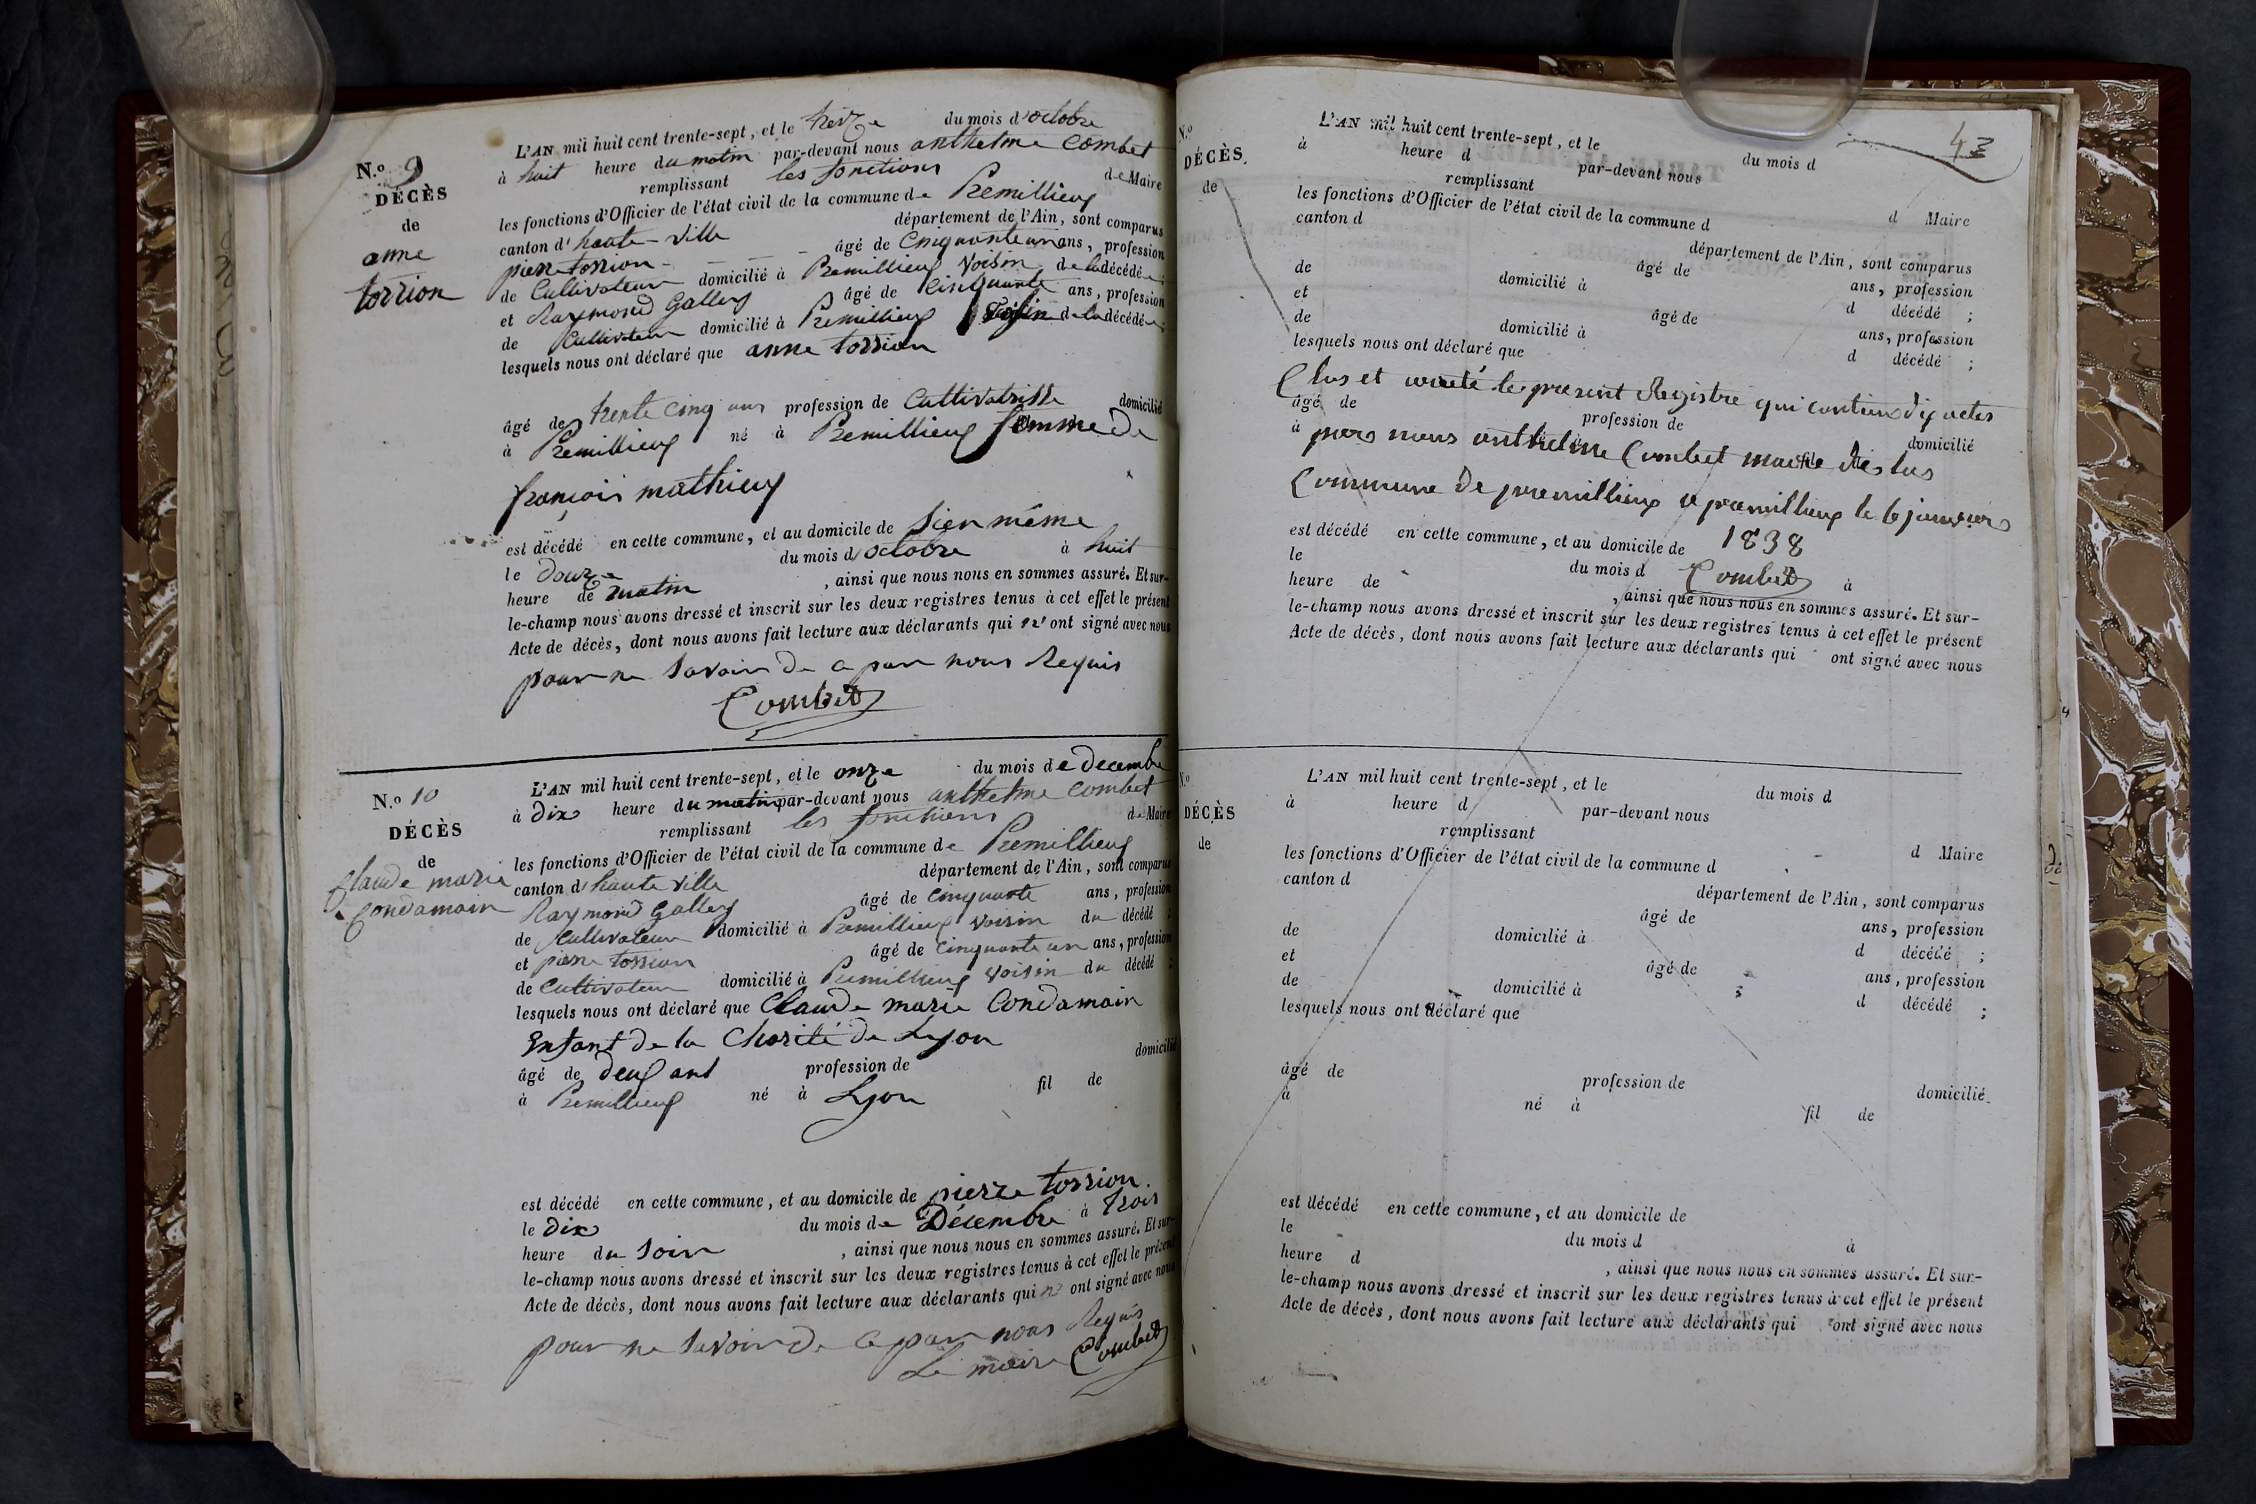 N.o 9
DÉCÈS
de
anne
torrion
L'AN mil huit cent trente-sept, et le treize du mois d'octobre
à huit heure du matin par-devant nous anthelme Combet
remplissant les fonctions de Maire
les fonctions d'Officier de l'état civil de la commune de Premillieux
canton d'haute-ville département de l'Ain, sont comparus
pierre torrion âgé de Cinquante un ans, profession
de Cultivateur domicilié à Premillieux voisin de la décédée;
et Raymond Gallay âgé de Cinquante ans, profession
de Cultivateur domicilié à Premillieux voisin de la décédée;
lesquels nous ont déclaré que anne torrion
âgé de trente cinq ans profession de Cultivatrisse domicilié
à Premillieux né à Premillieux femme de
françois mathieux
est décédé en cette commune, et au domicile de sien même
le douze du mois d'octobre à huit
heure de matin, ainsi que nous nous en sommes assuré. Et sur-
le-champ nous avons dressé et inscrit sur les deux registres tenus à cet effet le présent
Acte de décès, dont nous avons fait lecture aux déclarants qui n'ont signé avec nous
pour ne savoir de ce par nous Requis
Combet
N.o 10
DÉCÈS
de
Claude marie
Condamain
L'AN mil huit cent trente-sept, et le onze du mois de decembre
à dix heure du matin par-devant nous anthelme Combet
remplissant les fonctions de Maire
les fonctions d'Officier de l'état civil de la commune de Premillieux
canton d'haute ville département de l'Ain, sont comparus
Raymond Gallay âgé de cinquante ans, profession
de Cultivateur domicilié à Premillieux voisin du décédé;
et pierre torrion âgé de cinquante un ans, profession
de Cultivateur domicilié à Premillieux voisin du décédé;
lesquels nous ont déclaré que Claude marie Condamain
Enfant de la Charité de Lyon
âgé de deux ans profession de domicilié
à Premillieux né à Lyon fil de
est décédé en cette commune, et au domicile de pierre torrion.
le dix du mois de Décembre à trois
heure du soir, ainsi que nous nous en sommes assuré. Et sur-
le-champ nous avons dressé et inscrit sur les deux registres tenus à cet effet le présent
Acte de décès, dont nous avons fait lecture aux déclarants qui n'ont signé avec nous
pour ne savoir de ce par nous Requis
Le maire Combet
43
N.o
DÉCÈS
de
L'AN mil huit cent trente-sept, et le du mois d
à heure d par-devant nous
remplissant d Maire
les fonctions d'Officier de l'état civil de la commune d
canton d département de l'Ain, sont comparus
âgé de ans, profession
de domicilié à d décédé;
et âgé de ans, profession
de domicilié à d décédé;
lesquels nous ont déclaré que
Clos et arreté le present Registre qui contient dix actes
âgé de profession de domicilié
à né à fil de
par nous anthelme Combet maire
Commune de premillieux a premillieux le 6 janvier
1838
est décédé en cette commune, et au domicile de
le du mois d à
Combet
heure de, ainsi que nous nous en sommes assuré. Et sur-
le-champ nous avons dressé et inscrit sur les deux registres tenus à cet effet le présent
Acte de décès, dont nous avons fait lecture aux déclarants qui ont signé avec nous
N.o
DÉCÈS
de
L'AN mil huit cent trente-sept, et le du mois d
à heure d par-devant nous
remplissant d Maire
les fonctions d'Officier de l'état civil de la commune d
canton d département de l'Ain, sont comparus
âgé de ans, profession
de domicilié à d décédé;
et âgé de ans, profession
de domicilié à d décédé;
lesquels nous ont déclaré que
âgé de profession de domicilié
à né à fil de
est décédé en cette commune, et au domicile de
le du mois d à
heure d, ainsi que nous nous en sommes assuré. Et sur-
le-champ nous avons dressé et inscrit sur les deux registres tenus à cet effet le présent
Acte de décès, dont nous avons fait lecture aux déclarants qui ont signé avec nous